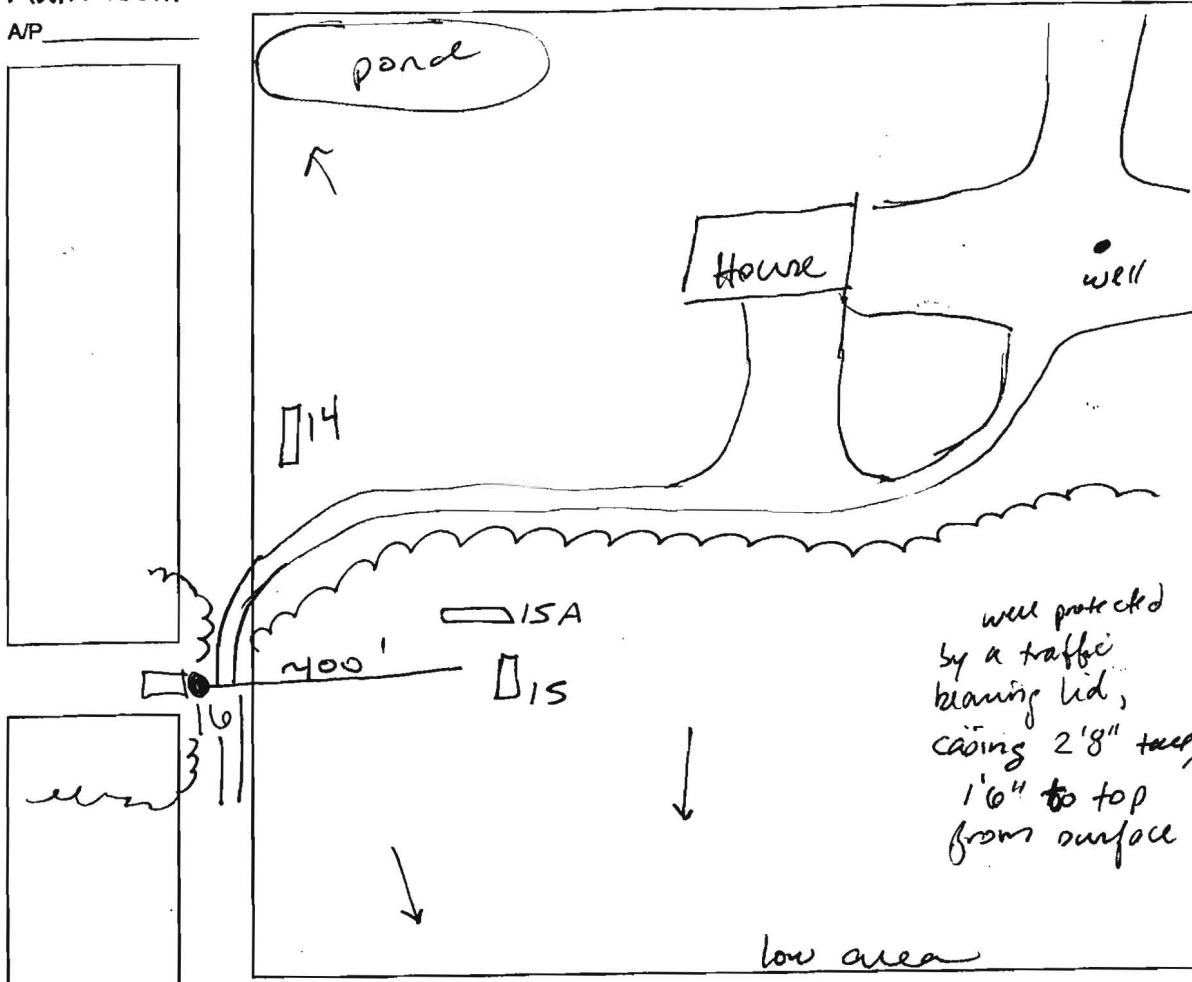 A/P
pond
House
well
14
15A
~100'
15
16
well protected
by a traffic
bearing lid,
casing 2'8"
1'6" to top
from surface
low area